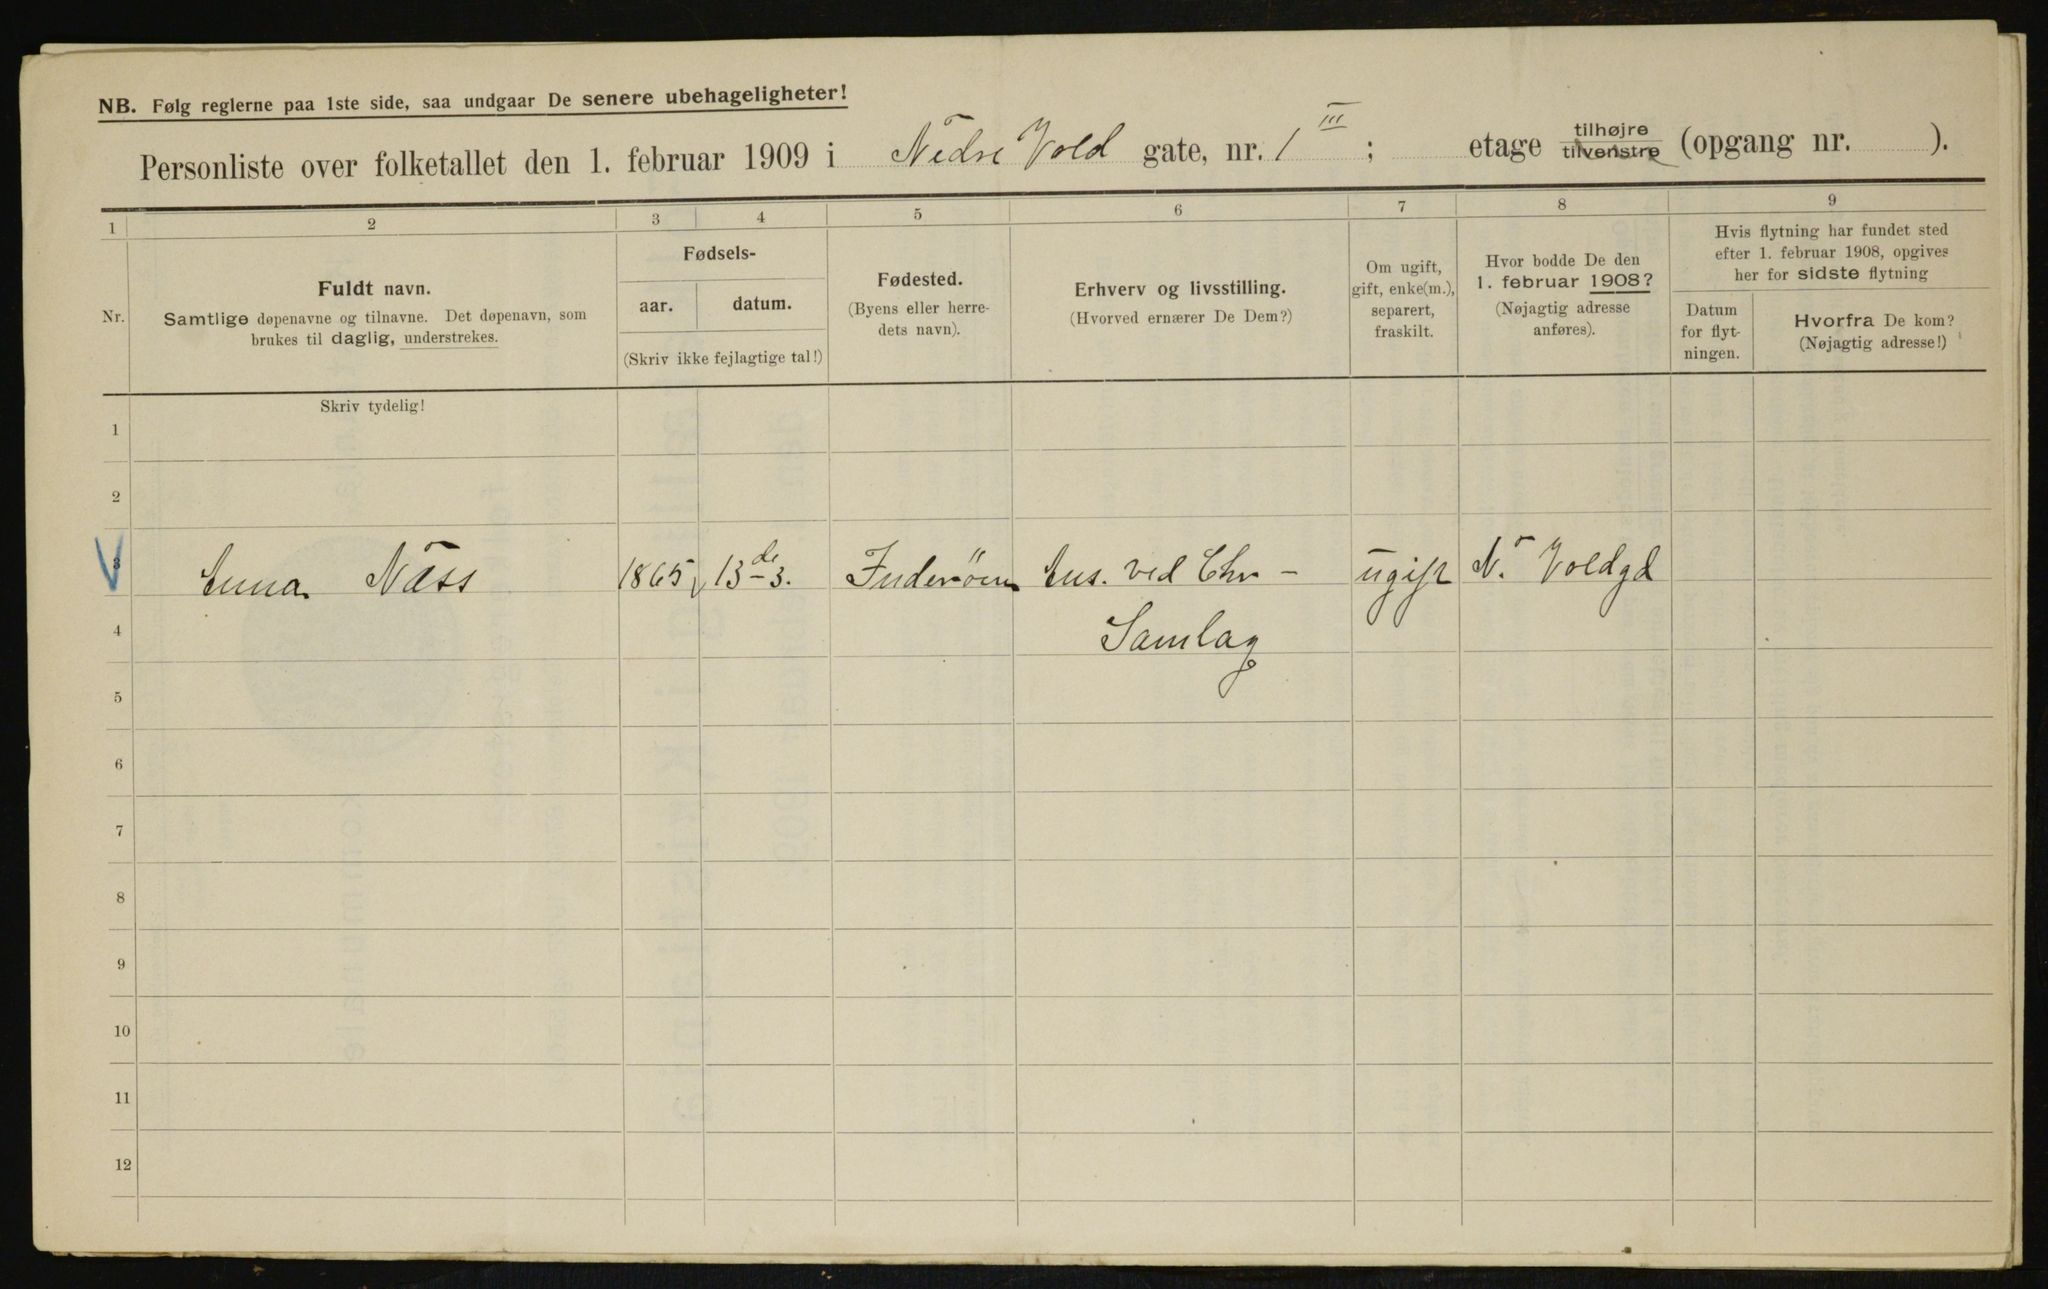 NB. Følg reglerne paa 1ste side, saa undgaar De senere ubehageligheter!
Personliste over folketallet den 1. februar 1909 i Nedre Vold gate, nr. 1 III ; etage tilhøjre tilvenstre (opgang nr. ).
1 2 3 4 5 6 7 8 9
Nr.
Fuldt navn.
Samtlige døpenavne og tilnavne. Det døpenavn, som
brukes til daglig, understrekes.
Fødsels-
aar. datum.
(Skriv ikke fejlagtige tal!)
Fødested.
(Byens eller herre-
dets navn).
Erhverv og livsstilling.
(Hvorved ernærer De Dem?)
Om ugift,
gift, enke(m.),
separert,
fraskilt.
Hvor bodde De den
1. februar 1908?
(Nøjagtig adresse
anføres).
Hvis flytning har fundet sted
efter 1. februar 1908, opgives
her for sidste flytning
Datum
for flyt-
ningen.
Hvorfra De kom?
(Nøjagtig adresse!)
Skriv tydelig!
1
2
3 Anna Næss 1865 13de 3. Inderøen Ans. ved Chr - ugift N. Voldgd
4 Samlag
5
6
7
8
9
10
11
12